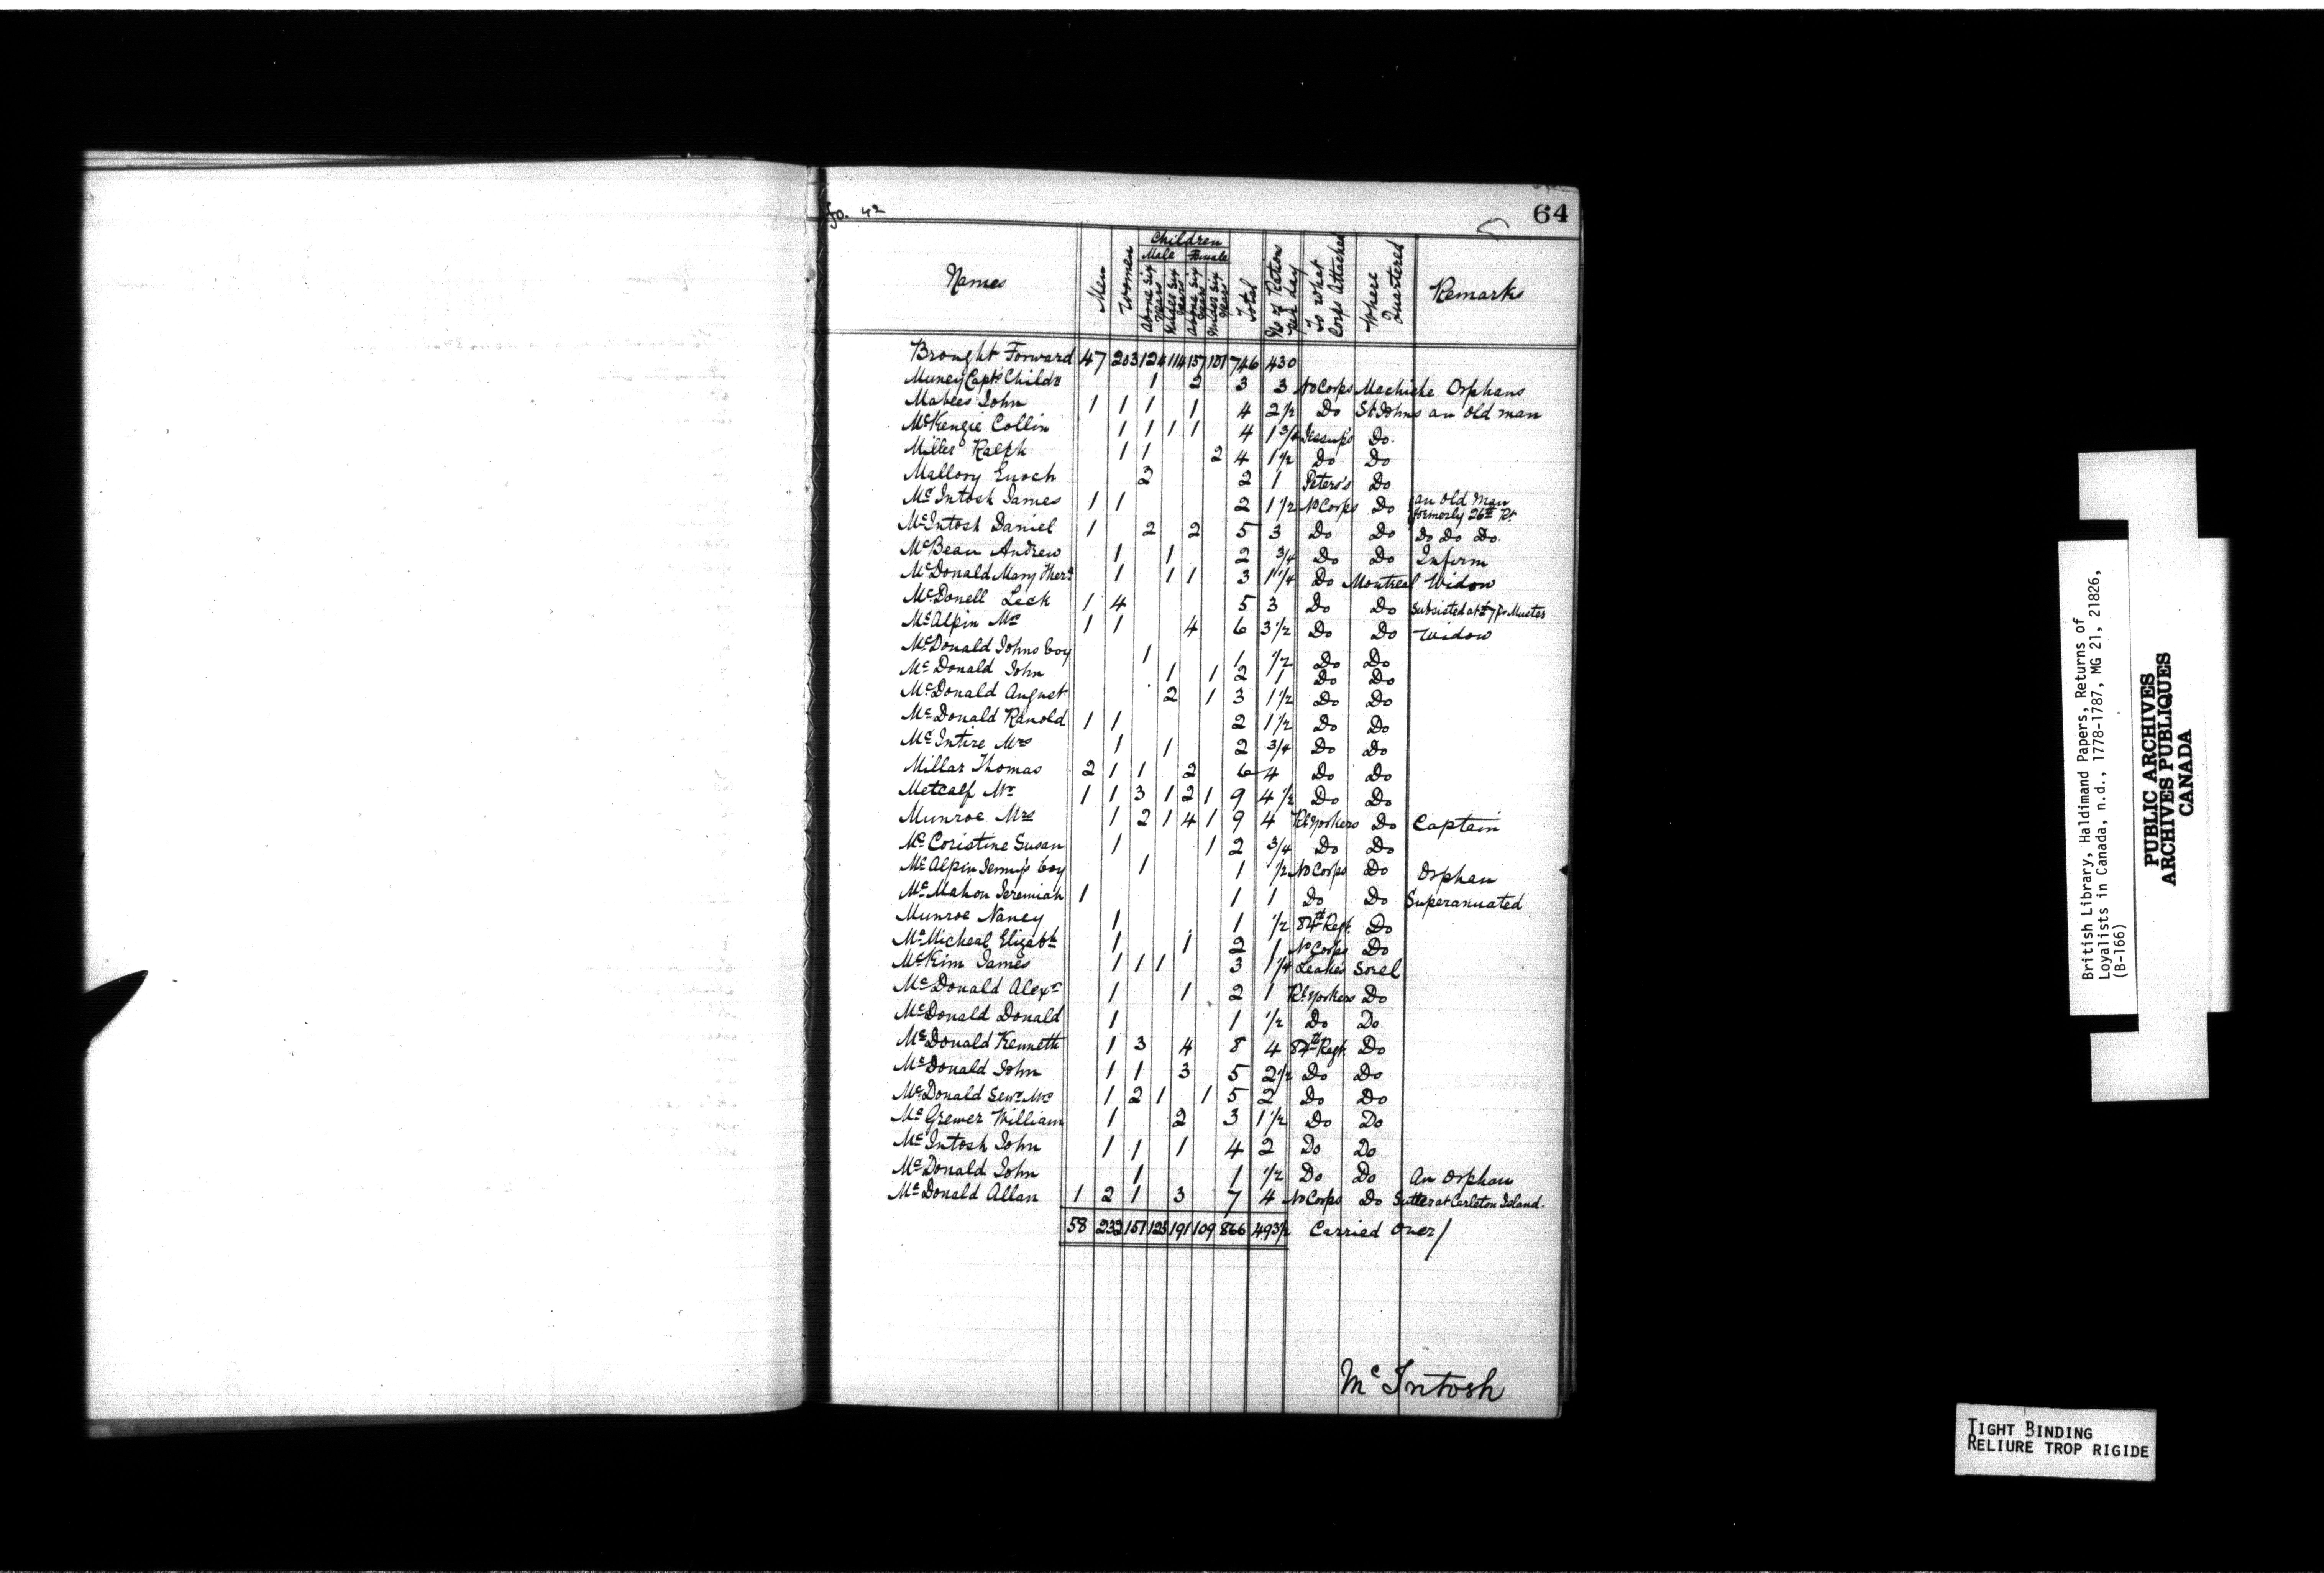 fo. 42
64
Names Men Women Children Male Above Six Years Under Six Years Female Above Six Years Under Six Years Total No of Rations per day To what Corps Attached Where Quartered Remarks
Brought Forward 47 203 124 114 157 101 746 430
Muney Capts Childn 1 2 3 3 No Corps Machiche Orphans
Mabees John 1 1 1 1 4 2 1/2 Do St Johns an old man
McKenzie Collin 1 1 1 1 4 1 3/4 Jessup's Do.
Miller Ralph 1 1 2 4 1 1/2 Do Do
Mallory Enoch 2 2 1 Peters's Do
McIntosh James 1 1 2 1 1/2 No Corps Do an Old Man formerly 26th Rt
McIntosh Daniel 1 2 2 5 3 Do Do Do Do Do.
McBean Andrew 1 1 2 3/4 Do Do Infirm
McDonald Mary 1 1 1 3 1 1/4 Do Montreal Widow
McDonell Leek 1 4 5 3 Do Do Subsisted at Muster
McAlpin Mrs 1 1 4 6 3 1/2 Do Do Widow
McDonald Johns boy 1 1 1/2 Do Do
McDonald John 1 1 2 1 Do Do
McDonald August 2 1 3 1 1/2 Do Do
McDonald Ranold 1 1 2 1 1/2 Do Do
McIntire Mrs 1 1 2 3/4 Do Do
Millar Thomas 2 1 1 2 6 4 Do Do
Metcalf Mr 1 1 3 1 2 1 9 4 1/2 Do Do
Munroe Mrs 1 2 1 4 1 9 4 Rl Yorkers Do Captain
McCoristine Susan 1 1 2 3/4 Do Do
McAlpin Jenny's boy 1 1 1/2 No Corps Do Orphan
McMahon Jeremiah 1 1 1 Do Do Superanuated
Munroe Nancy 1 1 1/2 84th Regt. Do
McMicheal Elizabth 1 1 2 1 No Corps Do
McKim James 1 1 1 3 1 1/4 Leake's Sorel
McDonald Alexr 1 1 2 1 Rl Yorkers Do
McDonald Donald 1 1 1/2 Do Do
McDonald Kenneth 1 3 4 8 4 84th Regt. Do
McDonald John 1 1 3 5 2 1/2 Do Do
McDonald Senr Mrs 1 2 1 1 5 2 Do Do
McGrewer William 1 2 3 1 1/2 Do Do
McIntosh John 1 1 1 4 2 Do Do
McDonald John 1 1 1/2 Do Do An Orphan
McDonald Allan 1 2 1 3 7 4 No Corps Do Sutler at Carleton Island.
58 232 151 125 191 109 866 493 1/2 Carried Over/
McIntosh
British Library, Haldimand Papers, Returns of
Loyalists in Canada, n.d., 1778-1787, MG 21, 21826,
(B-166)
PUBLIC ARCHIVES
ARCHIVES PUBLIQUES
CANADA
TIGHT BINDING
RELIURE TROP RIGIDE